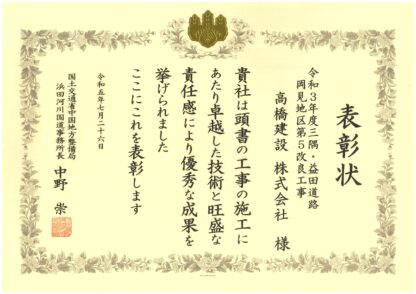 表彰状
令和3年度三隅・益田道路
岡見地区第5改良工事
高橋建設 株式会社 様
貴社は頭書の工事の施工に
あたり卓越した技術と旺盛な
責任感により優秀な成果を
挙げられました
ここにこれを表彰します
令和五年七月二十六日
国土交通省中国地方整備局
浜田河川国道事務所長 中野 崇